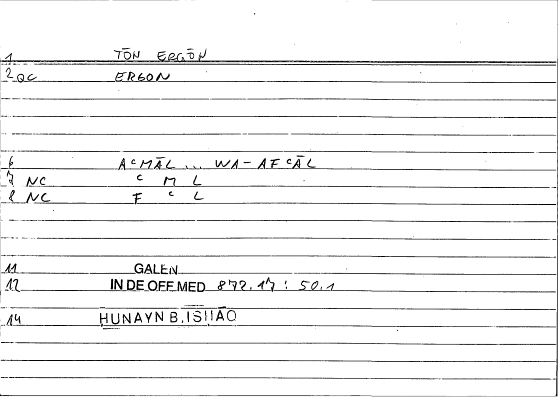 1 TŌN ERGŌN
2 QC ERGON
6 AᶜMĀL ... WA-AFᶜĀL
7 NC ᶜ M L
8 NC F ᶜ L
11 GALEN
12 IN DE OFF.MED 872.17 : 50.1
14 HUNAYN B. ISHAO